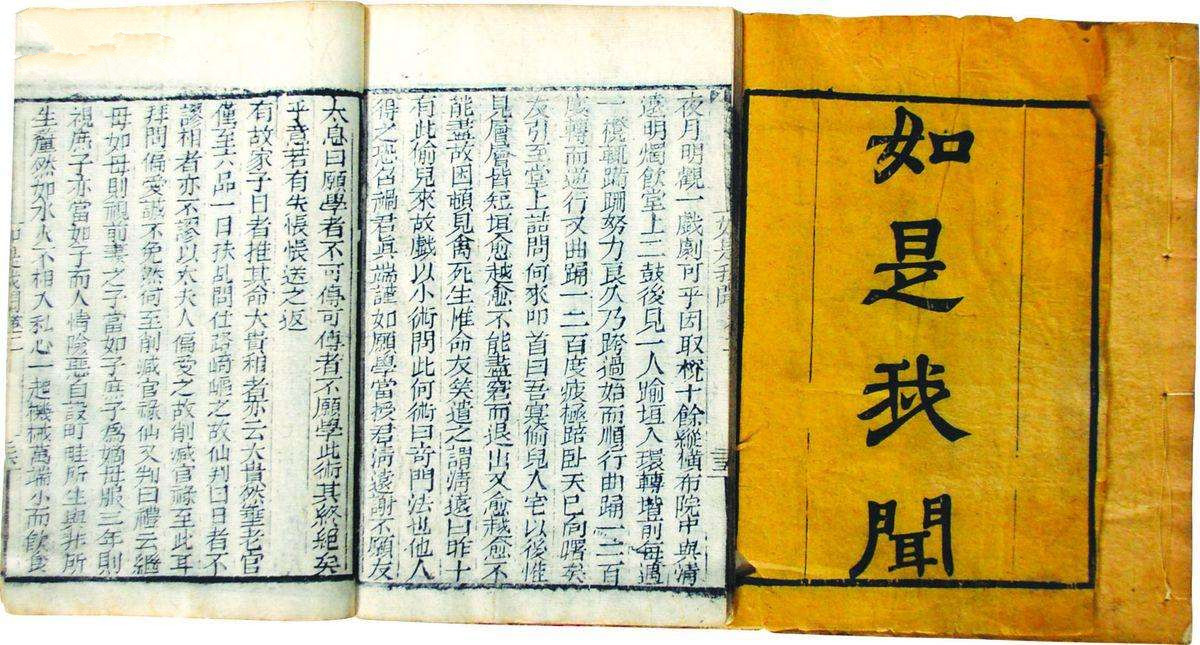 如是我聞
如是我聞
夜月明觀一戲劇可乎因取櫈十餘縱橫布院中與清
遠明燭飲堂上二鼓後見一人踰垣入環轉堦前每遇
一櫈輒蹣跚努力良久乃跨過始而順行曲踊一二百
度轉而逆行又曲踊一二百度疲極踣臥天已向曙矣
友引至堂上詰問何來叩首曰吾寔偷兒入宅以後惟
見層層皆短垣愈越愈不能盡窘而退出又愈越愈不
能盡故困頓見禽死生惟命友笑遣之謂清遠曰昨卜
有此偷兒來故戲以小術問此何術曰奇門法也他人
得之恐召禍君眞端謹如願學當授君清遠謝不願友
太息曰願學者不可傳可傳者不願學此術其終絕矣
乎意若有失悵悵送之返
有故家子日者推其命大貴相者亦云大貴然垂老官
僅至六品一日扶乩問仕路崎嶇之故仙判曰日者不
謬相者亦不謬以太夫人偏愛之故削減官祿至此耳
拜問偏愛誠不免然何至削減官祿仙又判曰禮云繼
母如母則視前妻之子當如子庶子爲嫡母服三年則
視庶子亦當如子而人情險惡自設町畦所生與非所
生釐然如水火不相入私心一起機械萬端小而飲食
如是我聞卷二